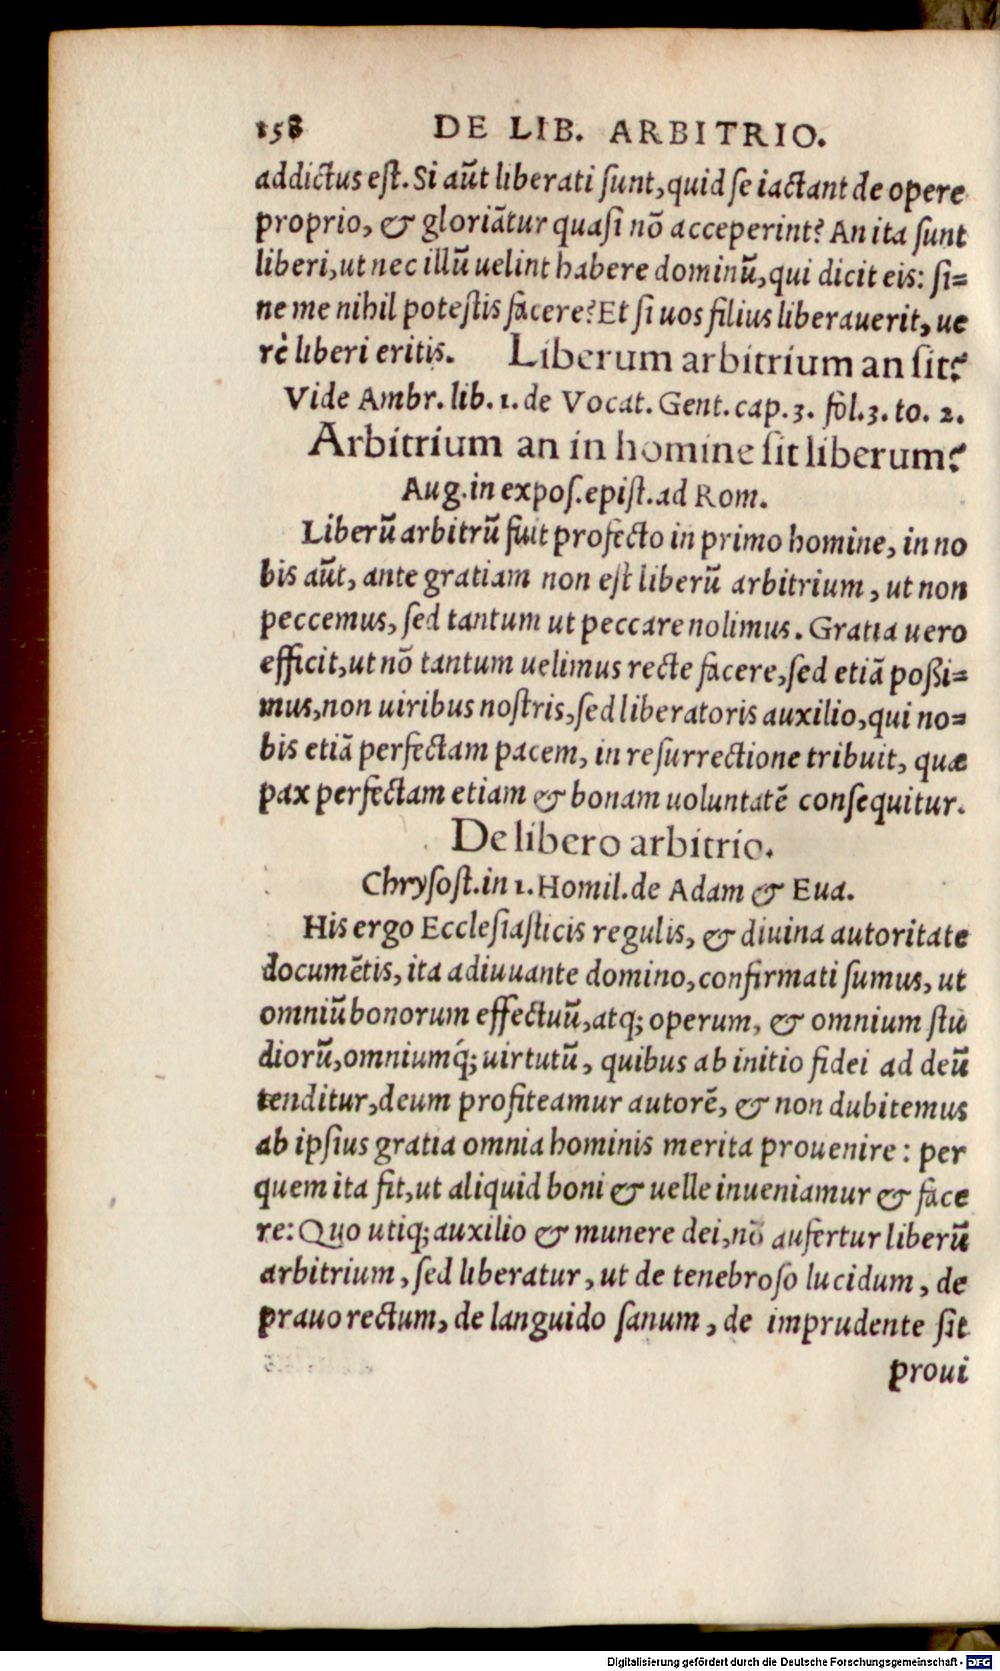 158 DE LIB. ARBITRIO.
addictus est. Si aūt liberati sunt, quid se iactant de opere
proprio, & gloriātur quasi nō acceperint? An ita sunt
liberi, ut nec illū uelint habere dominū, qui dicit eis: si=
ne me nihil potestis facere? Et si uos filius liberauerit, ue
rè liberi eritis. Liberum arbitrium an sit?
Vide Ambr. lib. 1. de Vocat. Gent. cap. 3. fol. 3. to. 2.
Arbitrium an in homine sit liberum?
Aug. in expos. epist. ad Rom.
Liberū arbitrū fuit profecto in primo homine, in no
bis aūt, ante gratiam non est liberū arbitrium, ut non
peccemus, sed tantum ut peccare nolimus. Gratia uero
efficit, ut nō tantum uelimus recte facere, sed etiā poßi=
mus, non uiribus nostris, sed liberatoris auxilio, qui no=
bis etiā perfectam pacem, in resurrectione tribuit, quæ
pax perfectam etiam & bonam uoluntatē consequitur.
De libero arbitrio.
Chrysost. in 1. Homil. de Adam & Eua.
His ergo Ecclesiasticis regulis, & diuina autoritate
documētis, ita adiuuante domino, confirmati sumus, ut
omniū bonorum effectuū, atq; operum, & omnium stu
diorū, omniumq́; uirtutū, quibus ab initio fidei ad deū
tenditur, deum profiteamur autorē, & non dubitemus
ab ipsius gratia omnia hominis merita prouenire: per
quem ita fit, ut aliquid boni & uelle inueniamur & face
re: Quo utiq; auxilio & munere dei, nō aufertur liberū
arbitrium, sed liberatur, ut de tenebroso lucidum, de
prauo rectum, de languido sanum, de imprudente sit
proui
Digitalisierung gefördert durch die Deutsche Forschungsgemeinschaft - DFG